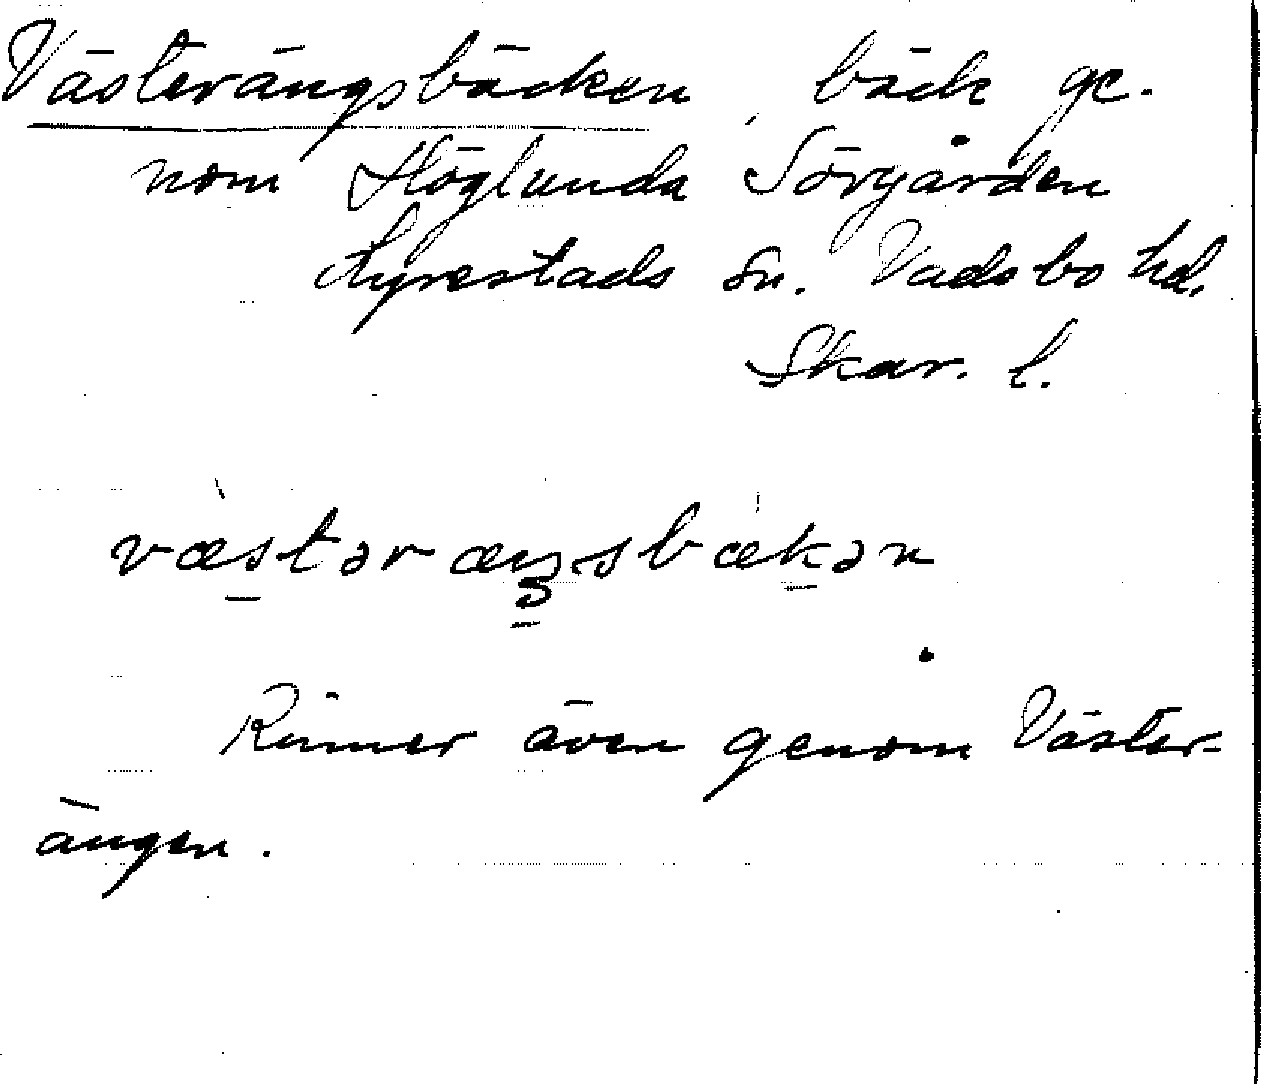 Västerängsbäcken, bäck ge-
nom Höglunda Sörgården
Lyrestads sn. Vadsbo hd.
Skar. l.
væstəræŋsbækən
Rinner även genom Väster-
ängen.